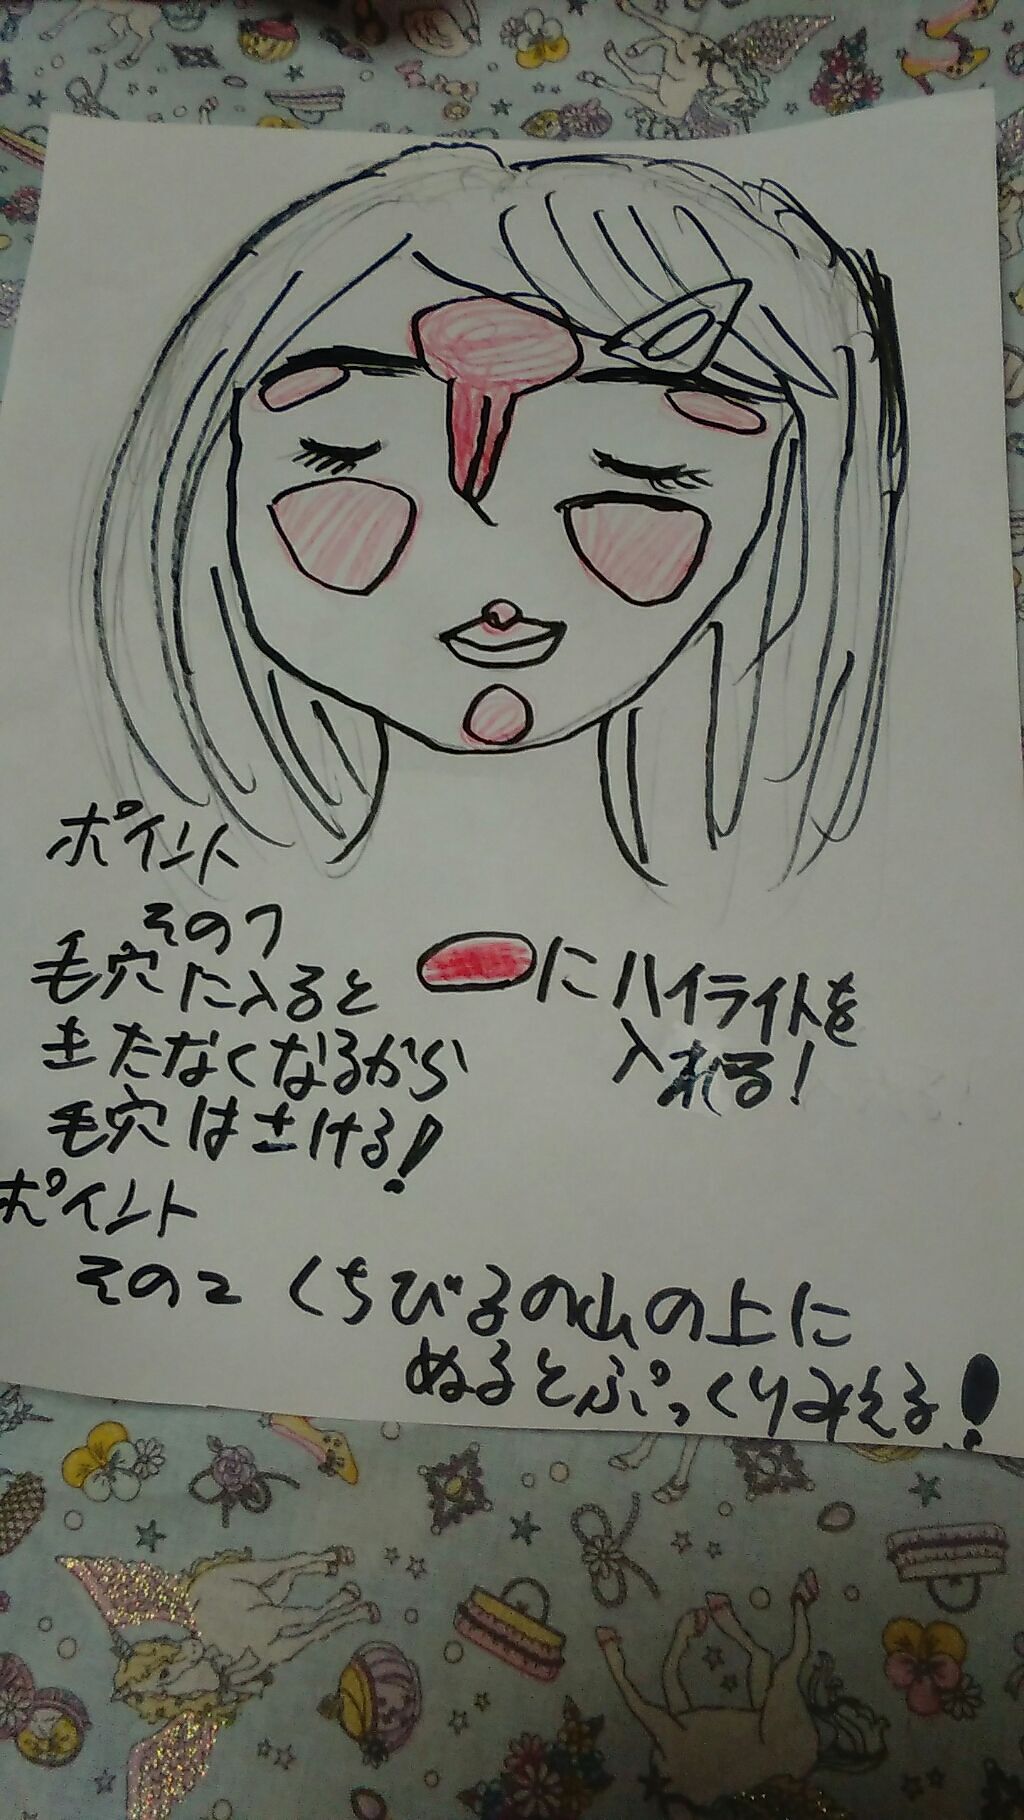 ポイント
その1
毛穴に入ると
主たなくなるから
毛穴はさける!
にハイライトを
入れる!
ポイント
その2 くちびるの山の上に
ぬるとぷっくりみえる!